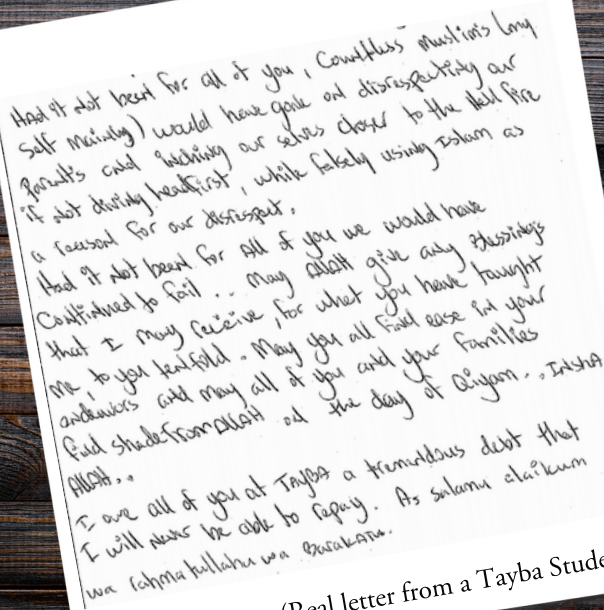 Had it not been for all of you, Countless Muslims (my
self mainly) would have gone on disrespecting our
Parents and inching our selves closer to the Hell Fire
if not diving headfirst, while falsely using Islam as
a reason for our disrespect.
Had it not been for All of you we would have
Continued to fail... May Allah give any Blessings
that I may receive, for what you have taught
me, to you tenfold. May you all find ease in your
endeavors and may all of you and your families
find shade From ALLAH on the day of Qiyam... InshA
Allah...
I owe all of you at TAYBA a tremendous debt that
I will never be able to repay. As salamu alaikum
wa rahmatullahu wa Barakatu.
(Real letter from a Tayba Stude